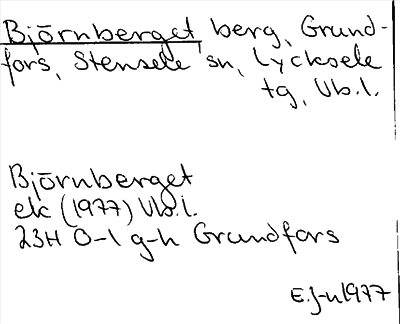 Björnberget, berg, Grund-
fors, Stensele sn, Lycksele
tg, Vb.l.
Björnberget
ek (1977) Vb.l.
23H 0-1 g-h Grundfors
E.J-n 1977